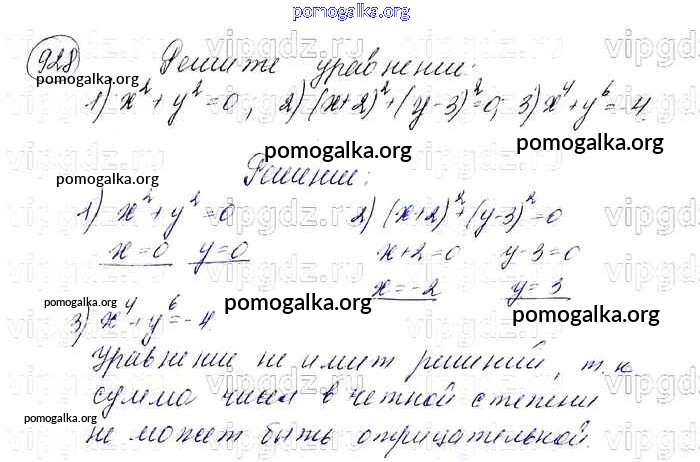 pomogalka.org
928) Решите уравнение:
pomogalka.org
1) x² + y² = 0, 2) (x+2)² + (y-3)² = 0, 3) x⁴ + y⁶ = -4.
pomogalka.org pomogalka.org
Решение:
pomogalka.org
1) x² + y² = 0 2) (x+2)² + (y-3)² = 0
x = 0 y = 0 x+2=0 y-3=0
x = -2 y = 3
pomogalka.org pomogalka.org pomogalka.org
3) x⁴ + y⁶ = -4.
Уравнение не имит решений, т. к
сумма чисел в четной степени
pomogalka.org
не может быть отрицательной.
vipgdz.ru